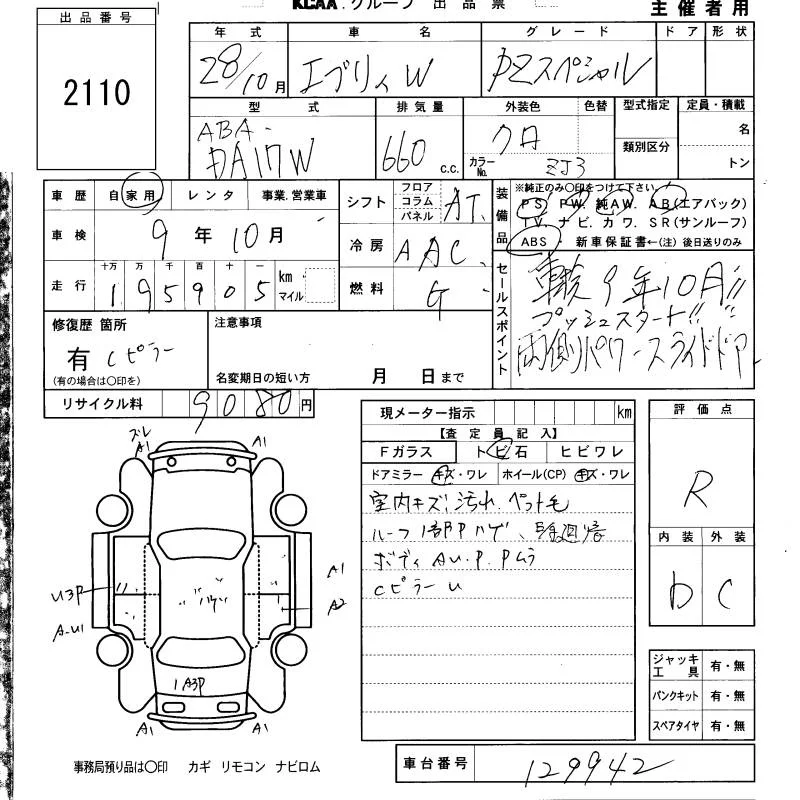 KCAA.グループ 出品票
主催者用
出品番号
2110
年式 車名 グレード ドア 形状
28/10月 エブリイW PZスペシャル
型式 排気量 外装色 色替 型式指定 定員・積載
ABA-
DA17W 660 c.c. クロ カラーNo. ZJ3 類別区分 名
トン
車歴 自家用 レンタ 事業.営業車
車検 9年10月
走行 十万 万 千 百 十 一
195905 km マイル
シフト フロア コラム パネル AT
冷房 AAC
燃料 G
装備品 ※純正のみ〇印をつけて下さい
PS. PW. 純AW. AB(エアバック)
TV. ナビ. カワ. SR(サンルーフ)
ABS・新車保証書←(注)後日送りのみ
セールスポイント
車検9年10月!!
プッシュスタート!!
両側パワースライドドア
修復歴 箇所 注意事項
有 Cピラー
(有の場合は〇印を) 名変期日の短い方 月 日まで
リサイクル料 9080円
現メーター指示 km
【査定員記入】
Fガラス トビ石 ヒビワレ
ドアミラー キズ・ワレ ホイール(CP) キズ・ワレ
室内キズ汚れ.ペット毛
ルーフ1部Pハゲ、
ボディAU.P.Pムラ
CピラーU
評価点
R
内装 外装
D C
ズレ
A1 A1
U3P A1
A-U1 A2
ハゲ
1A3P
A1 A1
ジャッキ工具 有・無
パンクキット 有・無
スペアタイヤ 有・無
事務局預り品は〇印 カギ リモコン ナビロム
車台番号 129942